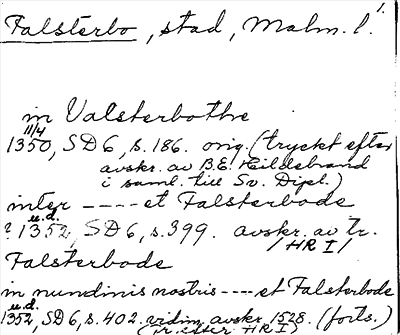 1.
Falsterbo, stad, Malm. l.
in Valsterbothe
11/4
1350, SD 6, s. 186. orig. (tryckt efter
avskr. av B.E. Hildebrand
i saml. till Sv. Dipl.)
inter ---- et Falsterbode
u.d.
? 1352, SD 6, s. 399. avskr. av tr.
/HR I/
Falsterbode
in nundinis nostris ---- et Falsterbode
u.d.
1352, SD 6, s. 402. vidim. avskr. 1528. (forts.)
(tr. efter HR I)